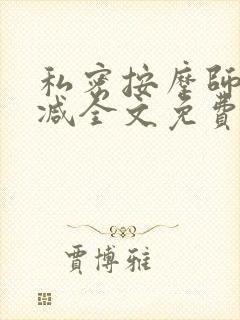 私密按摩師
减全文免費
賈博雅